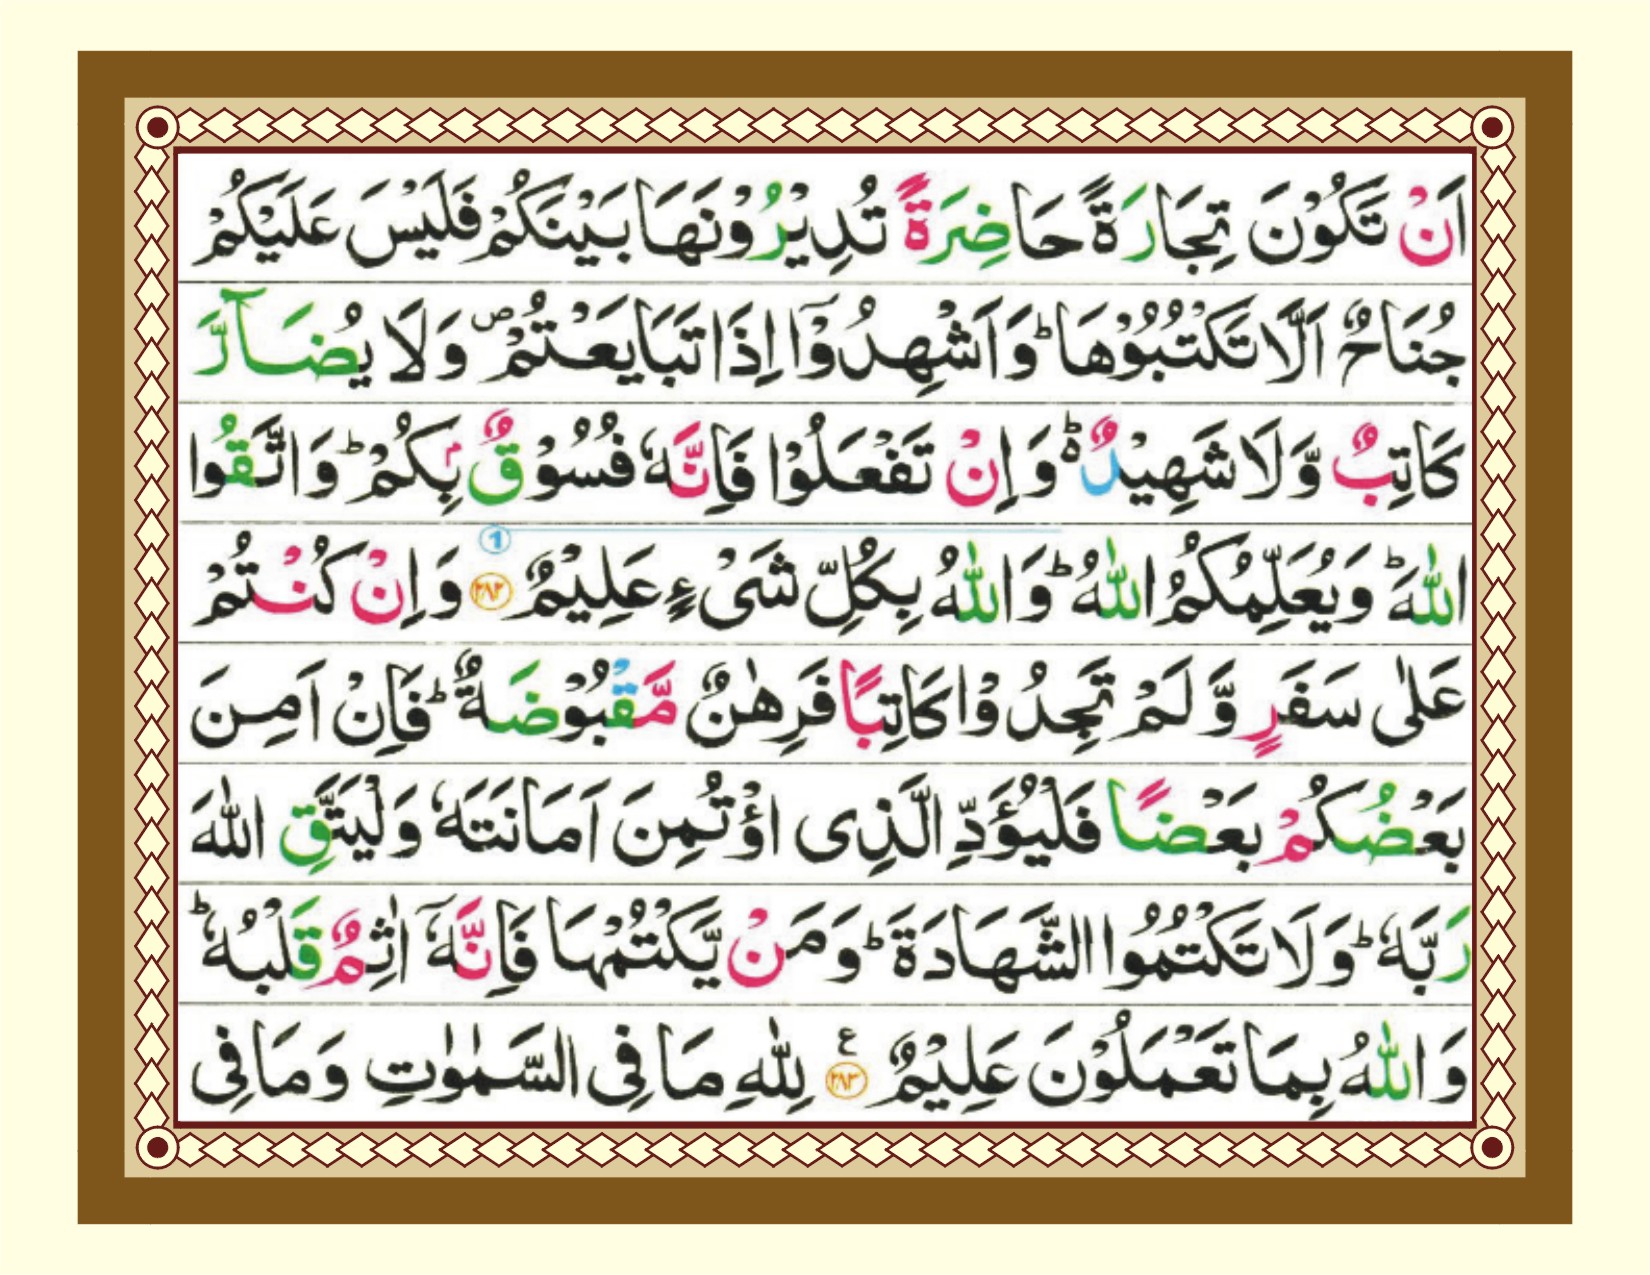 اَنْ تَكُوْنَ تِجَارَةً حَاضِرَةً تُدِيْرُوْنَهَا بَيْنَكُمْ فَلَيْسَ عَلَيْكُمْ
جُنَاحٌ اَلَّا تَكْتُبُوْهَا ؕ وَاَشْهِدُوْۤا اِذَا تَبَايَعْتُمْ ۪ وَلَا يُضَآرَّ
كَاتِبٌ وَّلَا شَهِيْدٌ ؕ۬ وَاِنْ تَفْعَلُوْا فَاِنَّهٗ فُسُوْقٌۢ بِكُمْ ؕ وَاتَّقُوا
1
اللّٰهَ ؕ وَيُعَلِّمُكُمُ اللّٰهُ ؕ وَاللّٰهُ بِكُلِّ شَىْءٍ عَلِيْمٌ ۲۸۲ وَاِنْ كُنْتُمْ
عَلٰى سَفَرٍ وَّلَمْ تَجِدُوْا كَاتِبًا فَرِهٰنٌ مَّقْبُوْضَةٌ ؕ فَاِنْ اَمِنَ
بَعْضُكُمْ بَعْضًا فَلْيُؤَدِّ الَّذِى اؤْتُمِنَ اَمَانَتَهٗ وَلْيَتَّقِ اللّٰهَ
رَبَّهٗ ؕ وَلَا تَكْتُمُوا الشَّهَادَةَ ؕ وَمَنْ يَّكْتُمْهَا فَاِنَّهٗۤ اٰثِمٌ قَلْبُهٗ ؕ
وَاللّٰهُ بِمَا تَعْمَلُوْنَ عَلِيْمٌ ۲۸۳ ع لِلّٰهِ مَا فِى السَّمٰوٰتِ وَمَا فِى